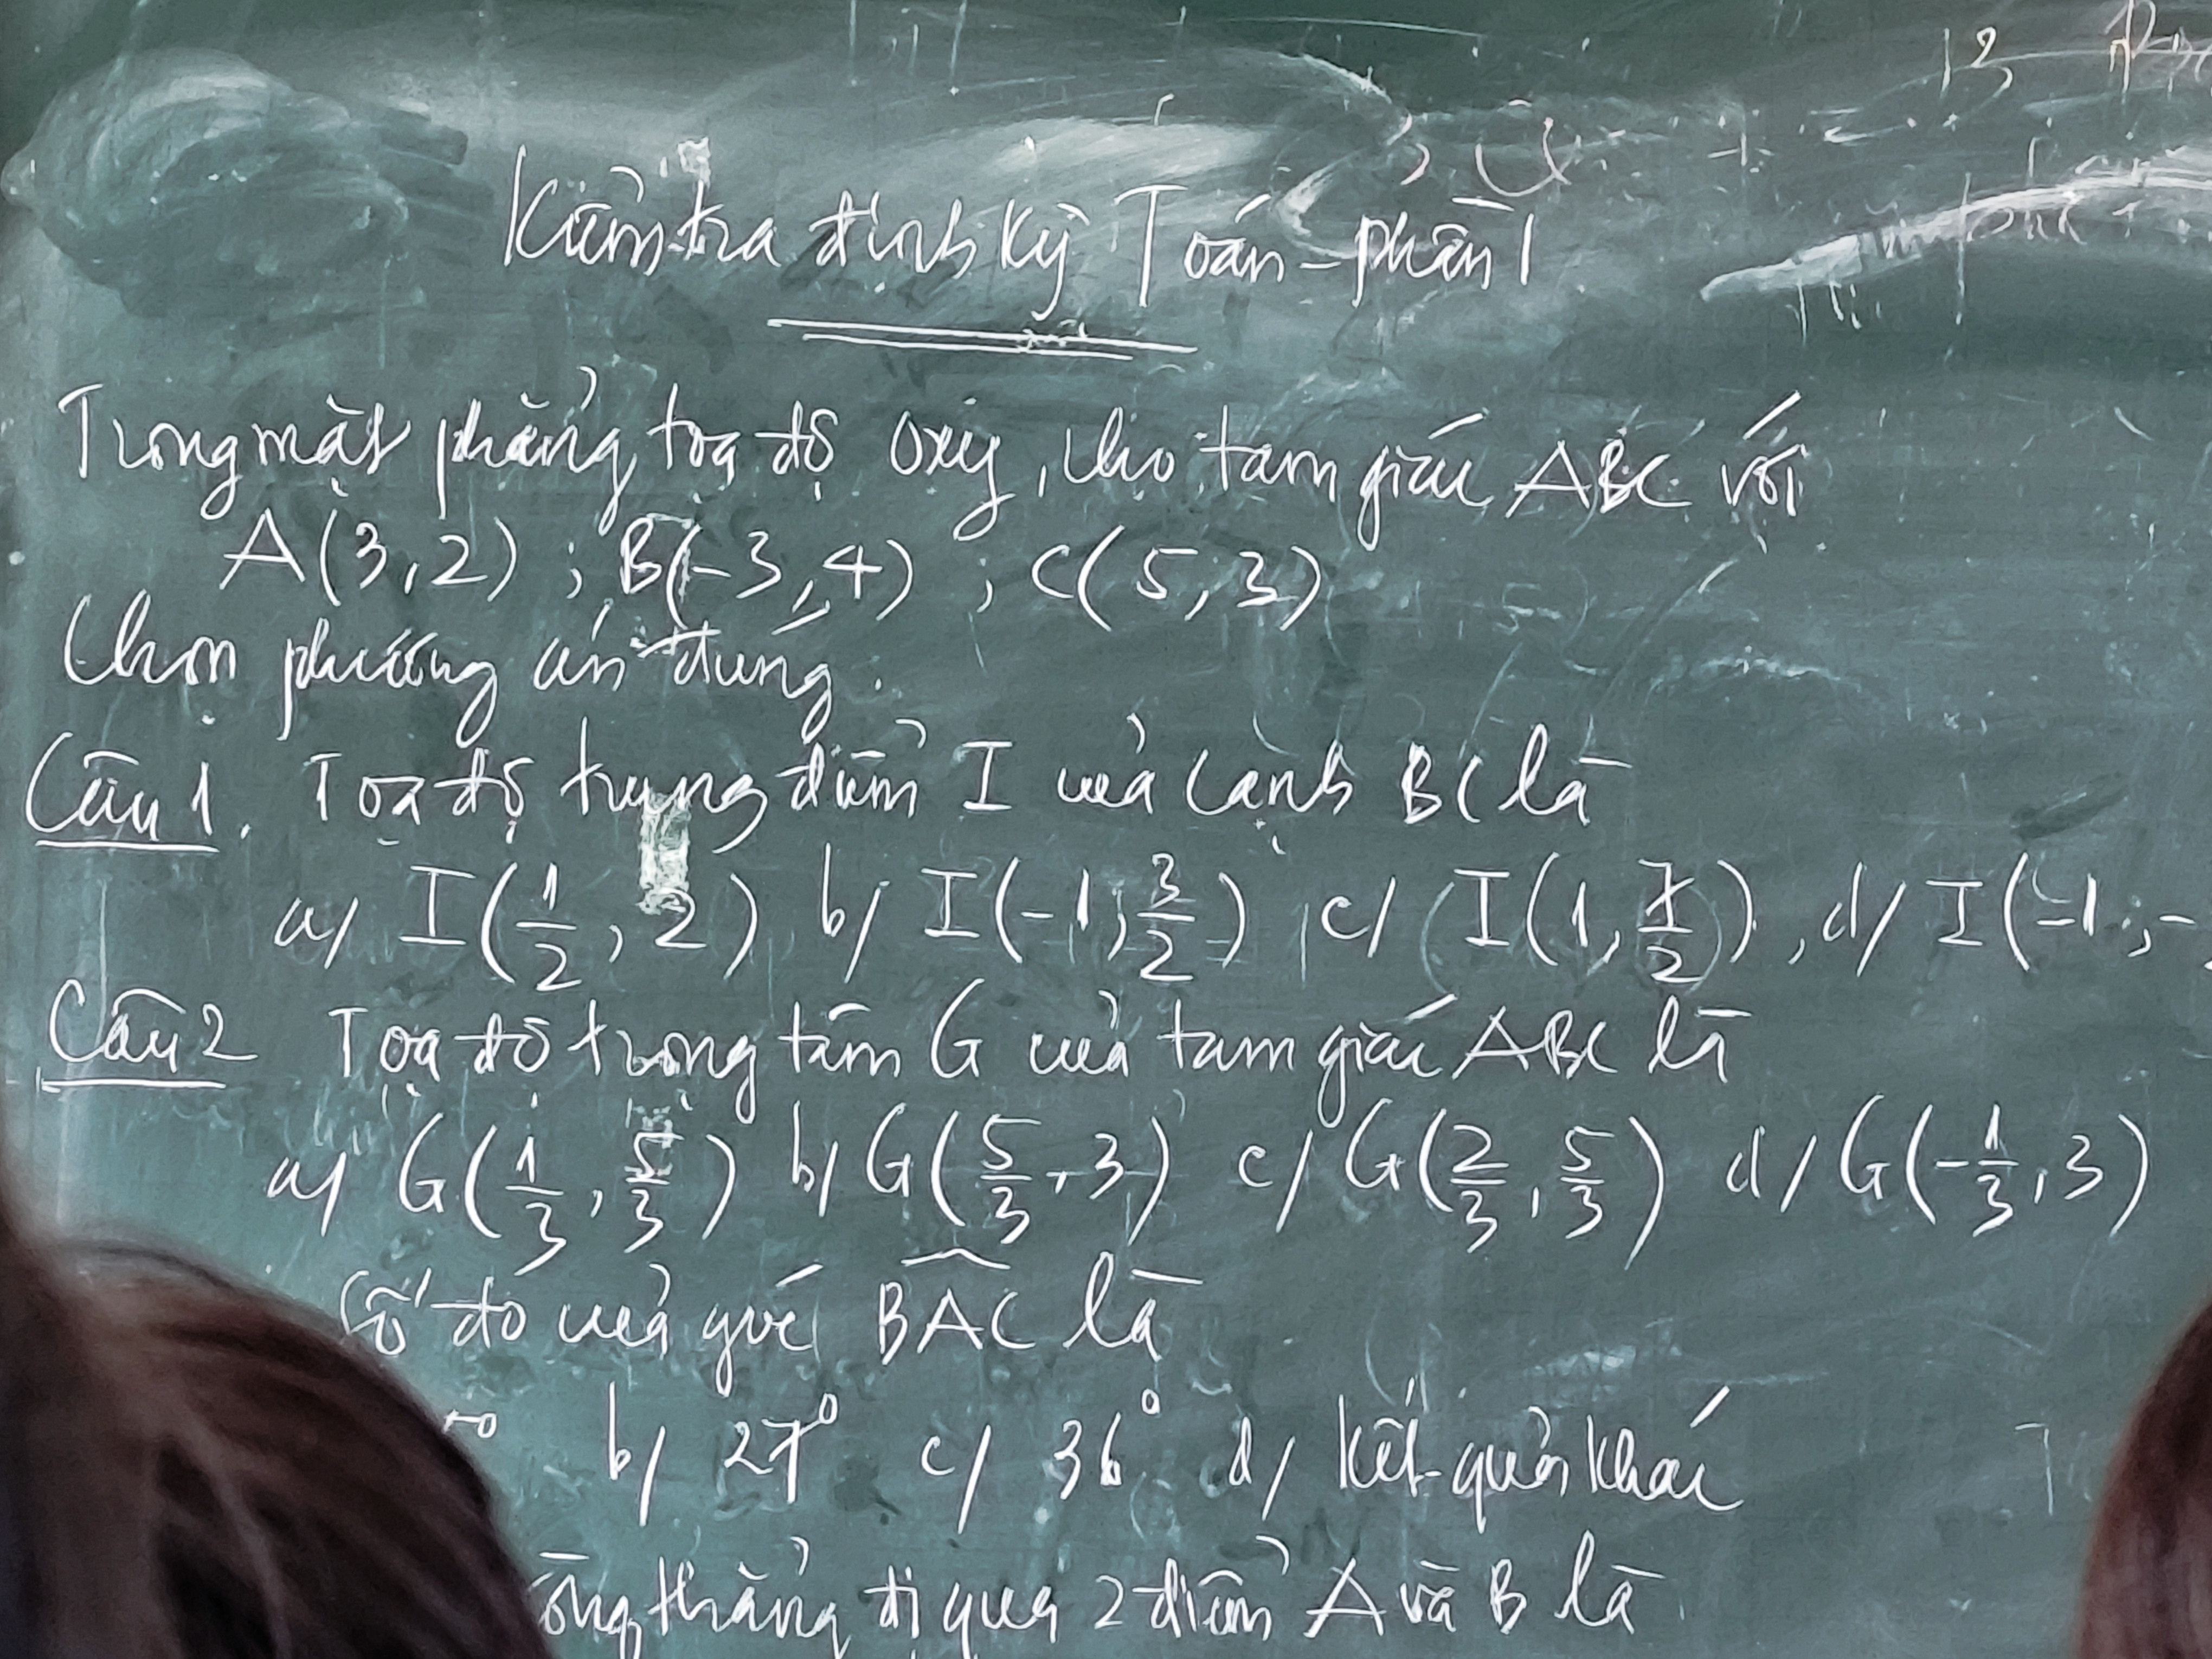 Kiểm tra định kỳ Toán - phần 1
Trong mặt phẳng tọa độ Oxy, cho tam giác ABC với
A(3,2) ; B(-3,4) , C(5,3)
Chọn phương án đúng.
Câu 1. Tọa độ trung điểm I của cạnh BC là
a/ I(1/2, 2) b/ I(-1, 3/2), c/ I(1, 7/2), d/ I(-1 ; -
Câu 2 Tọa độ trọng tâm G của tam giác ABC là
a/ G(1/3, 5/3) b/ G(5/3, 3) c/ G(2/3, 5/3) d/ G(-1/3, 3)
Số đo của góc BAC là
b/ 27° c/ 36° d/ kết quả khác
thẳng đi qua 2 điểm A và B là